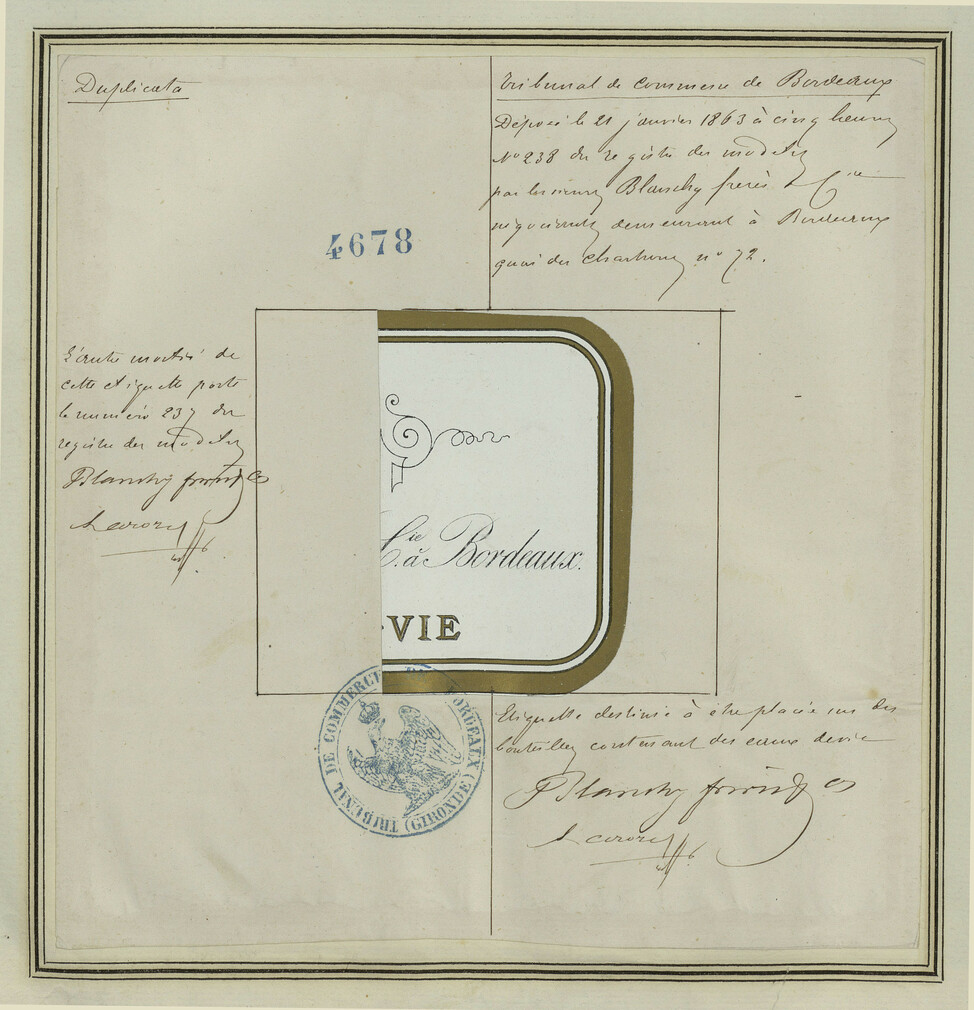 Duplicata
Tribunal de Commerce de Bordeaux
Déposé le 21 janvier 1863 à cinq heures
N° 238 du registre des modèles
par les sieurs Blanchy frères & Cie
négociants demeurant à Bordeaux
quai des Chartrons n° 72.
4678
L'autre moitié de
cette etiquette porte
le numéro 237 du
registre des modèles
Blanchy frères & Co
Cie à Bordeaux.
-VIE
TRIBUNAL DE COMMERCE DE BORDEAUX (GIRONDE)
Etiquette destinée à être placée sur des
bouteilles contenant des eaux de vie
Blanchy frères & Co